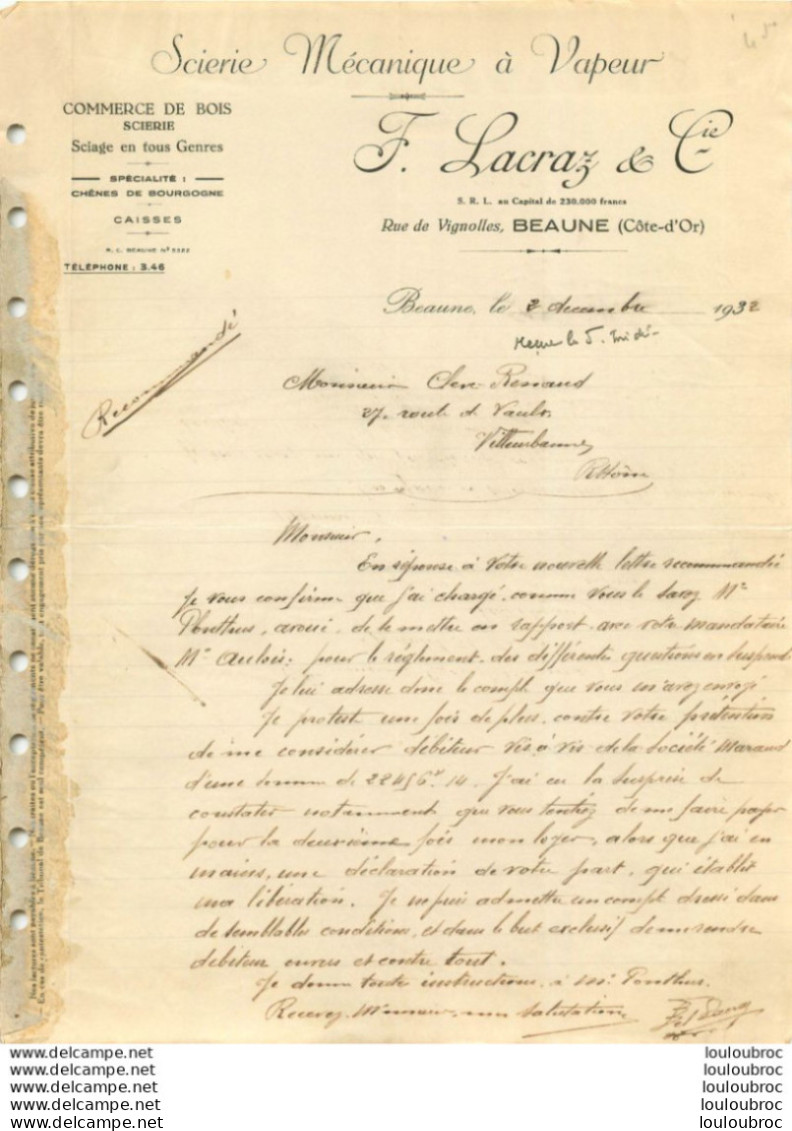 Scierie Mécanique à Vapeur
COMMERCE DE BOIS
SCIERIE
Sciage en tous Genres
SPÉCIALITÉ :
CHÊNES DE BOURGOGNE
CAISSES
R. C. BEAUNE Nº
TÉLÉPHONE : 3.46
F. Lacraz & Cie
S. R. L. au Capital de 230.000 francs
Rue de Vignolles, BEAUNE (Côte-d'Or)
Beaune, le 2 decembre 1932
reçue le 5.
Recommandé
Monsieur Clerc Renaud
27, route de Vaulx
Villeurbanne
Rhône
Monsieur,
En réponse à votre nouvelle lettre recommandée
je vous confirme que j'ai chargé, comme vous le savez Me
Ponthus, avoué, de se mettre en rapport avec votre mandataire
Me Aulois, pour le réglement des différentes questions en suspend
Je lui adresse donc le compte que vous m'avez envoyé
Je proteste une fois de plus, contre votre prétention
de me considérer débiteur vis à vis de la Société Marand
d'une somme de 22456 fr. 14. J'ai eu la surprise de
constater notamment que vous tentiez de me faire payer
pour la deuxième fois mon loyer, alors que j'ai en
mains, une déclaration de votre part, qui établit
ma libération. Je ne puis admettre un compte dressé dans
de semblables conditions, et dans le but exclusif de me rendre
débiteur envers et contre tout.
Je donne toute instructions à Me Ponthus.
Recevez, Monsieur, mes salutations
www.delcampe.net
www.delcampe.net
www.delcampe.net
www.delcampe.net
www.delcampe.net
louloubroc
louloubroc
louloubroc
louloubroc
louloubroc